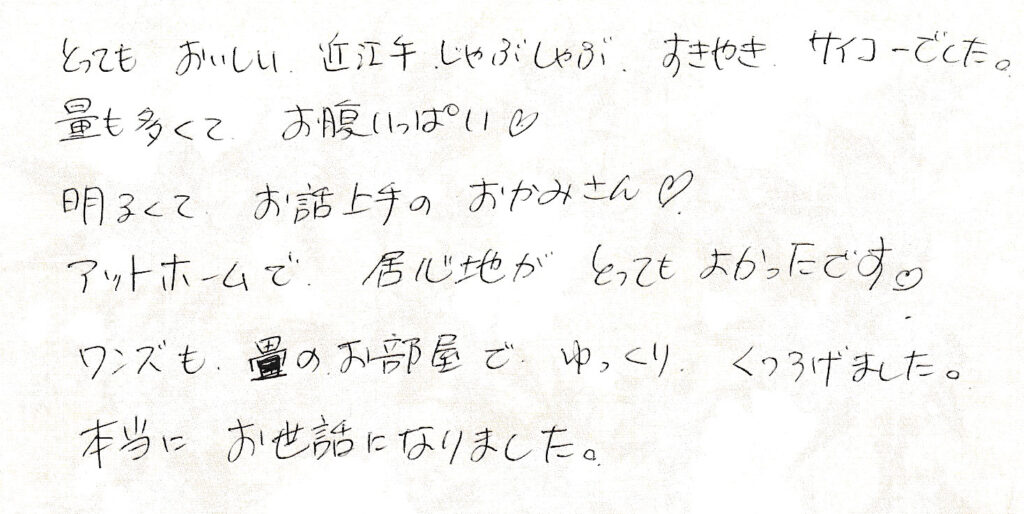 とっても おいしい 近江牛 しゃぶしゃぶ すきやき サイコーでした。
量も多くて お腹いっぱい♡
明るくて お話上手の おかみさん♡
アットホームで 居心地が とってもよかったです♡
ワンズも 畳のお部屋で ゆっくり くつろげました。
本当に お世話になりました。